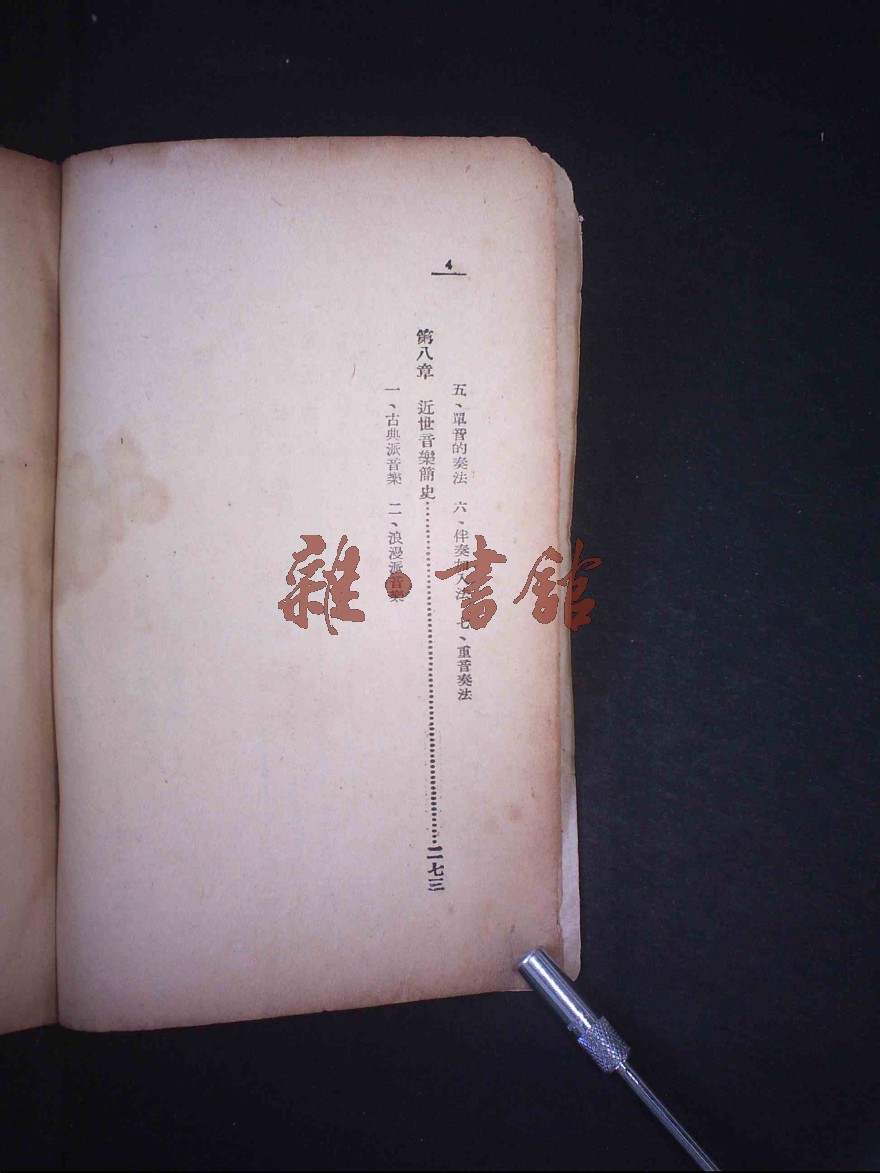 4
五、單音的奏法 六、伴奏加入法 七、重音奏法
第八章 近世音樂簡史…………二七三
一、古典派音樂 二、浪漫派音樂
雜·書館